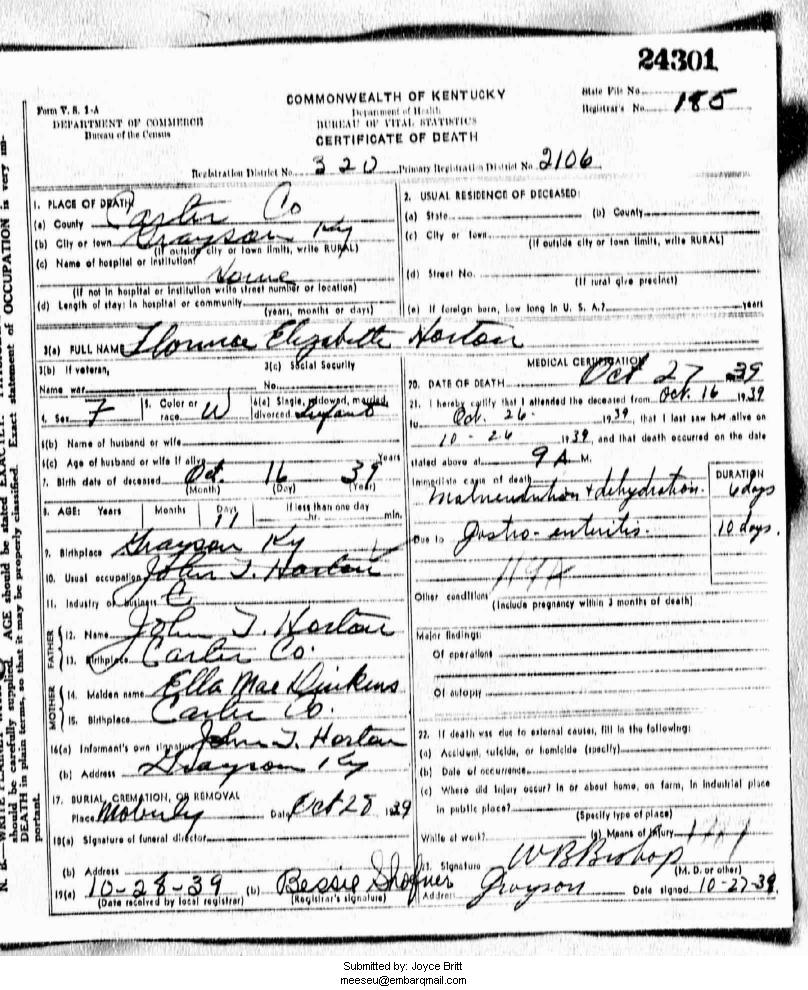 24301
Form V. S. 1-A
DEPARTMENT OF COMMERCE
Bureau of the Census
COMMONWEALTH OF KENTUCKY
Department of Health
BUREAU OF VITAL STATISTICS
CERTIFICATE OF DEATH
State File No.
Registrar's No. 185
Registration District No. 320 Primary Registration District No. 2106
1. PLACE OF DEATH
(a) County Carter Co
(b) City or town Grayson Ky
(If outside city or town limits, write RURAL)
(c) Name of hospital or institution
Home
(If not in hospital or institution write street number or location)
(d) Length of stay: In hospital or community
(years, months or days)
2. USUAL RESIDENCE OF DECEASED:
(a) State (b) County
(c) City or town
(If outside city or town limits, write RURAL)
(d) Street No.
(If rural give precinct)
(e) If foreign born, how long in U. S. A.? years
3(a) FULL NAME Florence Elizabeth Horton
3(b) If veteran,
Name war
3(c) Social Security
No.
4. Sex F
5. Color or race W
6(a) Single, widowed, married, divorced Infant
6(b) Name of husband or wife
6(c) Age of husband or wife if alive Years
7. Birth date of deceased Oct. 16 39
(Month) (Day) (Year)
8. AGE: Years Months Days 11 If less than one day hr. min.
9. Birthplace Grayson Ky
10. Usual occupation John T. Horton
11. Industry or business
FATHER
12. Name John T. Horton
13. Birthplace Carter Co.
MOTHER
14. Maiden name Ella Mae Dinkens
15. Birthplace Carter Co.
16(a) Informant's own signature John T. Horton
(b) Address Grayson Ky
17. BURIAL, CREMATION, OR REMOVAL
Place Moberly Date Oct 28 1939
18(a) Signature of funeral director
(b) Address
19(a) 10-28-39 (b) Bessie Shofner
(Date received by local registrar) (Registrar's signature)
MEDICAL CERTIFICATION
20. DATE OF DEATH Oct 27 39
21. I hereby certify that I attended the deceased from Oct. 16 1939
to Oct. 26 1939, that I last saw her alive on
10-26 1939, and that death occurred on the date
stated above at 9 A M.
Immediate cause of death
Malnutrition + dehydration.
DURATION
6 days
Due to Gastro-enteritis. 10 days.
119A
Other conditions
(Include pregnancy within 3 months of death)
Major findings:
Of operations
Of autopsy
22. If death was due to external causes, fill in the following:
(a) Accident, suicide, or homicide (specify)
(b) Date of occurrence
(c) Where did injury occur? In or about home, on farm, in industrial place
in public place?
(Specify type of place)
While at work? (e) Means of injury
23. Signature W B Bishop
(M. D. or other)
Address Grayson Date signed 10-27-39
should be carefully supplied. AGE should be stated EXACTLY.
DEATH in plain terms, so that it may be properly classified. Exact statement of OCCUPATION is very im-
portant.
Submitted by: Joyce Britt
meeseu@embarqmail.com